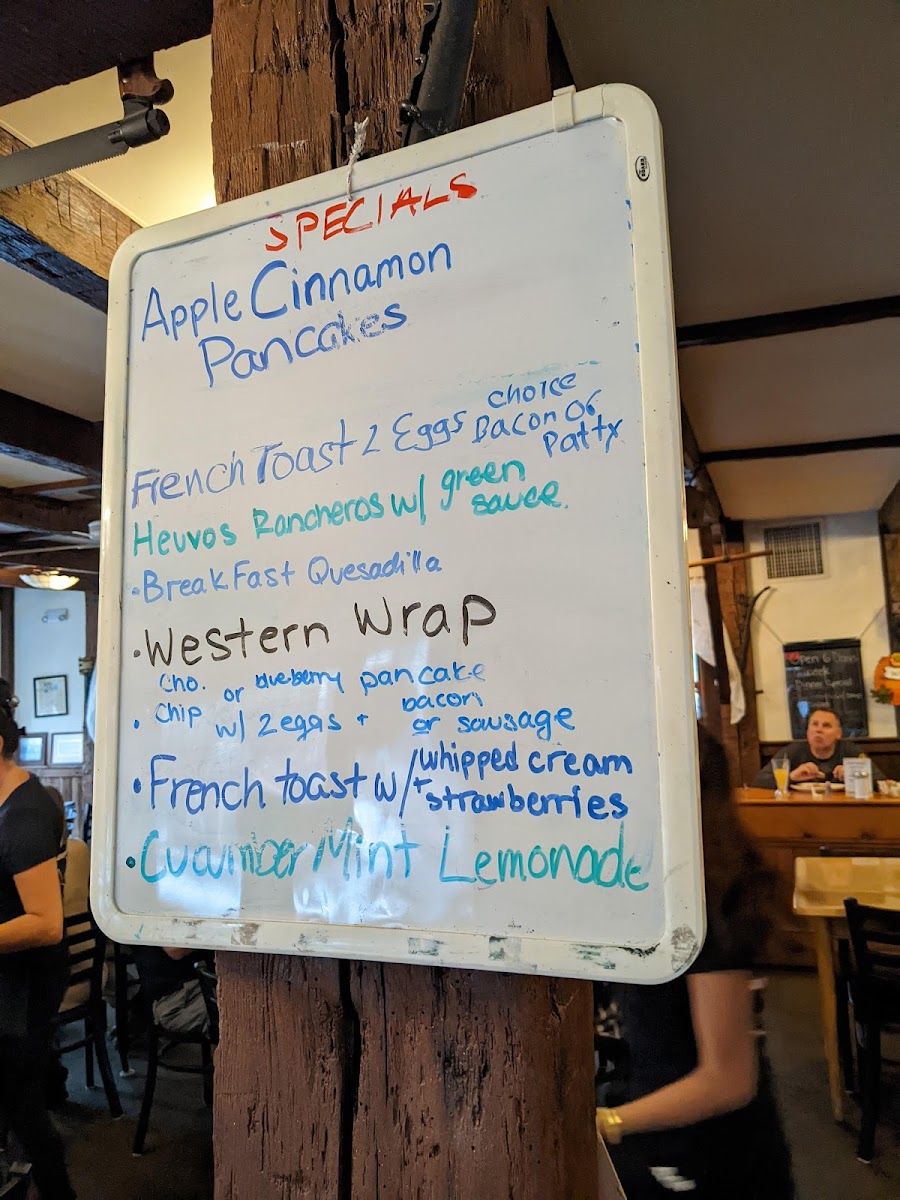 SPECIALS
Apple Cinnamon
Pancakes
French Toast 2 Eggs choice Bacon Or Patty
Heuvos Rancheros w/ green sauce.
• BreakFast Quesadilla
• Western Wrap
• Cho. Chip or blueberry pancake
w/ 2 eggs + bacon or sausage
• French toast w/ whipped cream
+ strawberries
• Cucumber Mint Lemonade
Open 6 Days
Dinner Special